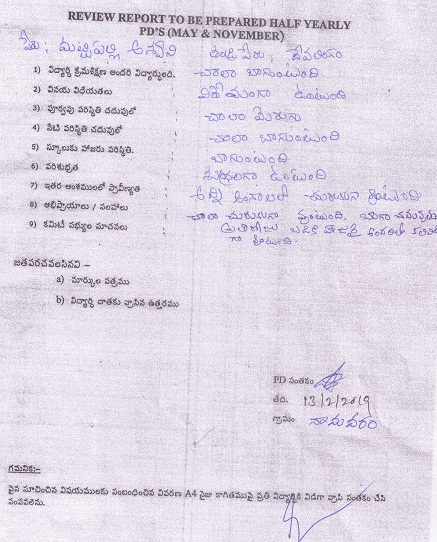 REVIEW REPORT TO BE PREPARED HALF YEARLY
PD'S (MAY & NOVEMBER)
పేరు; మట్టపల్లి అశ్వని తండ్రిపేరు; దేవలింగం
1) విద్యార్థి క్రమశిక్షణ అందరి విద్యార్థులది. చాలా బాగుంటుంది
2) వినయ విధేయతలు : విధేయంగా ఉంటుంది
3) పూర్వపు పరిస్థితి చదువులో : చాలా మెరుగు
4) నేటి పరిస్థితి చదువులో : చాలా బాగుంటుంది
5) స్కూలుకు హాజరు పరిస్థితి. : బాగుంటుంది
6) పరిశుభ్రత : శుభ్రంగా ఉంటుంది
7) ఇతర అంశములలో ప్రావీణ్యత : అన్ని అంశాలలో చురుకుగా ఉంటుంది
8) అభిప్రాయాలు / సలహాలు : చాలా చురుకుగా వుంటుంది. బాగా చదువుతు
9) కమిటీ సభ్యుల సూచనలు : ప్రతిరోజు బడికి హాజరై అందరితో
గా ఉంటుంది.
జతపరచవలసినవి :-
a) మార్కుల పత్రము
b) విద్యార్థి దాతకు వ్రాసిన ఉత్తరము
PD సంతకం
తేది. 13/2/2019
గ్రామం రామవరం
గమనిక:-
పైన సూచించిన విషయములకు సంబంధించిన వివరణ A4 సైజు కాగితముపై ప్రతి విద్యార్థికి విడిగా వ్రాసి సంతకం చేసి
పంపవలెను.